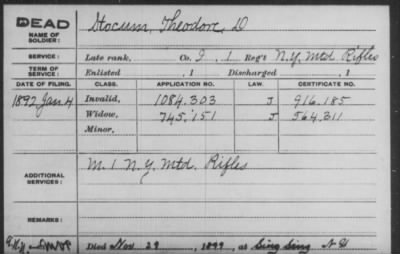 DEAD
NAME OF SOLDIER: Slocum, Theodore D
SERVICE: Late rank, Co. I, 1 Reg't N.Y. Mtd. Rifles
TERM OF SERVICE: Enlisted , 1 Discharged , 1
DATE OF FILING. CLASS. APPLICATION NO. LAW. CERTIFICATE NO.
1892 Jan. 4 Invalid, 1084.303 J 916.185
Widow, 745.151 J 564.311
Minor,
ADDITIONAL SERVICES: M. 1 N.Y. Mtd. Rifles
REMARKS:
Died Nov 29, 1899, at Sing Sing N.Y.